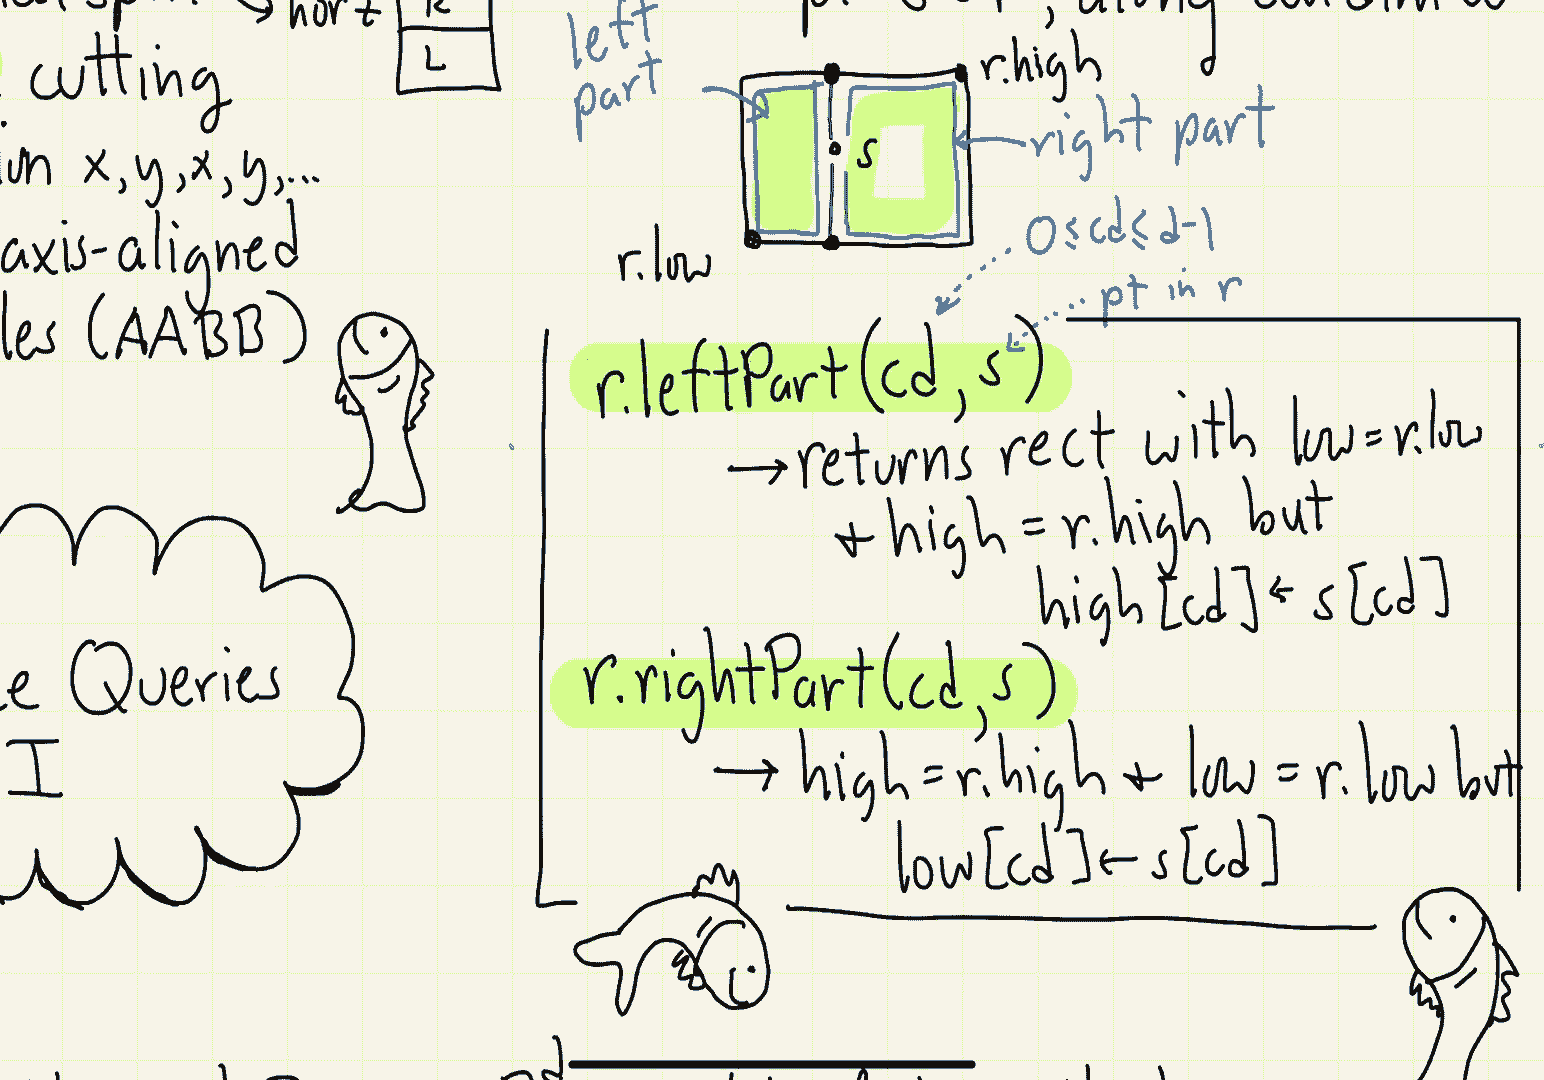 hort
R
L
cutting
x, y, x, y, ...
axis-aligned
(AABB)
Queries
I
left
part
r.high
right part
s
r.low
0 ≤ cd ≤ d-1
pt in r
r.leftPart(cd, s)
→ returns rect with low = r.low
+ high = r.high but
high[cd] ← s[cd]
r.rightPart(cd, s)
→ high = r.high + low = r.low but
low[cd] ← s[cd]